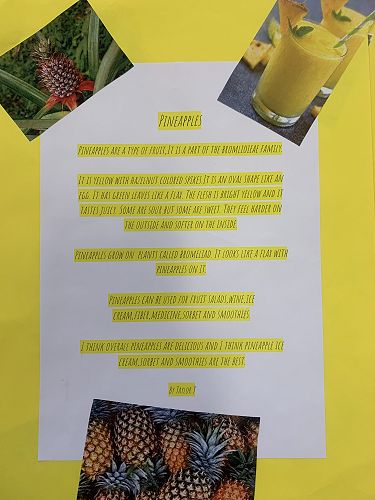 PINEAPPLES
PINEAPPLES ARE A TYPE OF FRUIT,IT IS A PART OF THE BROMLIDIEAE FAMILY.
IT IS YELLOW WITH HAZELNUT COLORED SPIKES.IT IS AN OVAL SHAPE LIKE AN
EGG. IT HAS GREEN LEAVES LIKE A FLAX. THE FLESH IS BRIGHT YELLOW AND IT
TASTES JUICY. SOME ARE SOUR BUT SOME ARE SWEET. THEY FEEL HARDER ON
THE OUTSIDE AND SOFTER ON THE INSIDE.
PINEAPPLES GROW ON PLANTS CALLED BROMELIAD. IT LOOKS LIKE A FLAX WITH
PINEAPPLES ON IT.
PINEAPPLES CAN BE USED FOR FRUIT SALADS,WINE,ICE
CREAM,FIBER,MEDICINE,SORBET AND SMOOTHIES.
I THINK OVERALL PINEAPPLES ARE DELICIOUS AND I THINK PINEAPPLE ICE
CREAM,SORBET AND SMOOTHIES ARE THE BEST.
BY TAYLOR T